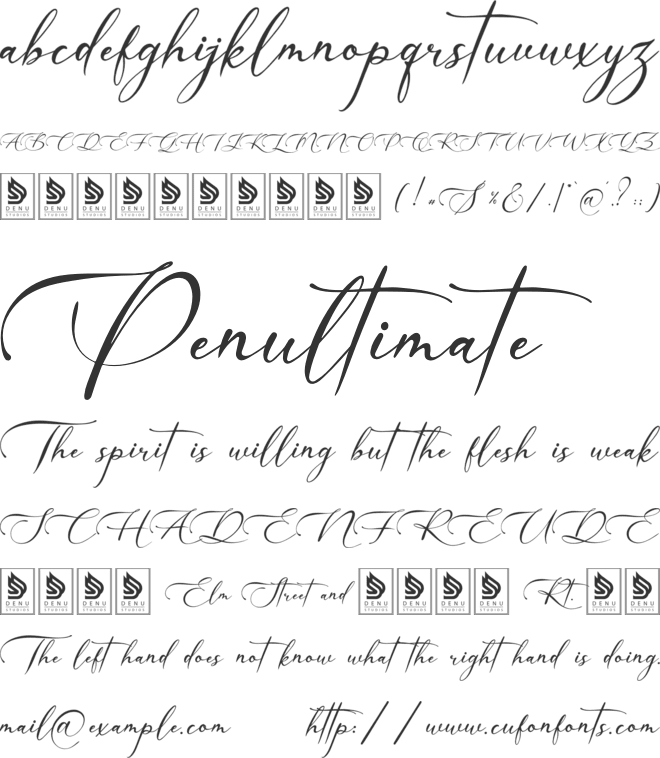 abcdefghijklmnopqrstuvwxyz
ABCDEFGHIJKLMNOPQRSTUVWXYZ
DENU STUDIOS DENU STUDIOS DENU STUDIOS DENU STUDIOS DENU STUDIOS DENU STUDIOS DENU STUDIOS DENU STUDIOS DENU STUDIOS DENU STUDIOS (!"$%&/.|*'@'?::)
Penultimate
The spirit is willing but the flesh is weak
SCHADENFREUDE
DENU STUDIOS DENU STUDIOS DENU STUDIOS DENU STUDIOS Elm Street and DENU STUDIOS DENU STUDIOS DENU STUDIOS DENU STUDIOS Rt. DENU STUDIOS DENU STUDIOS
The left hand does not know what the right hand is doing.
mail@example.com http://www.cufonfonts.com